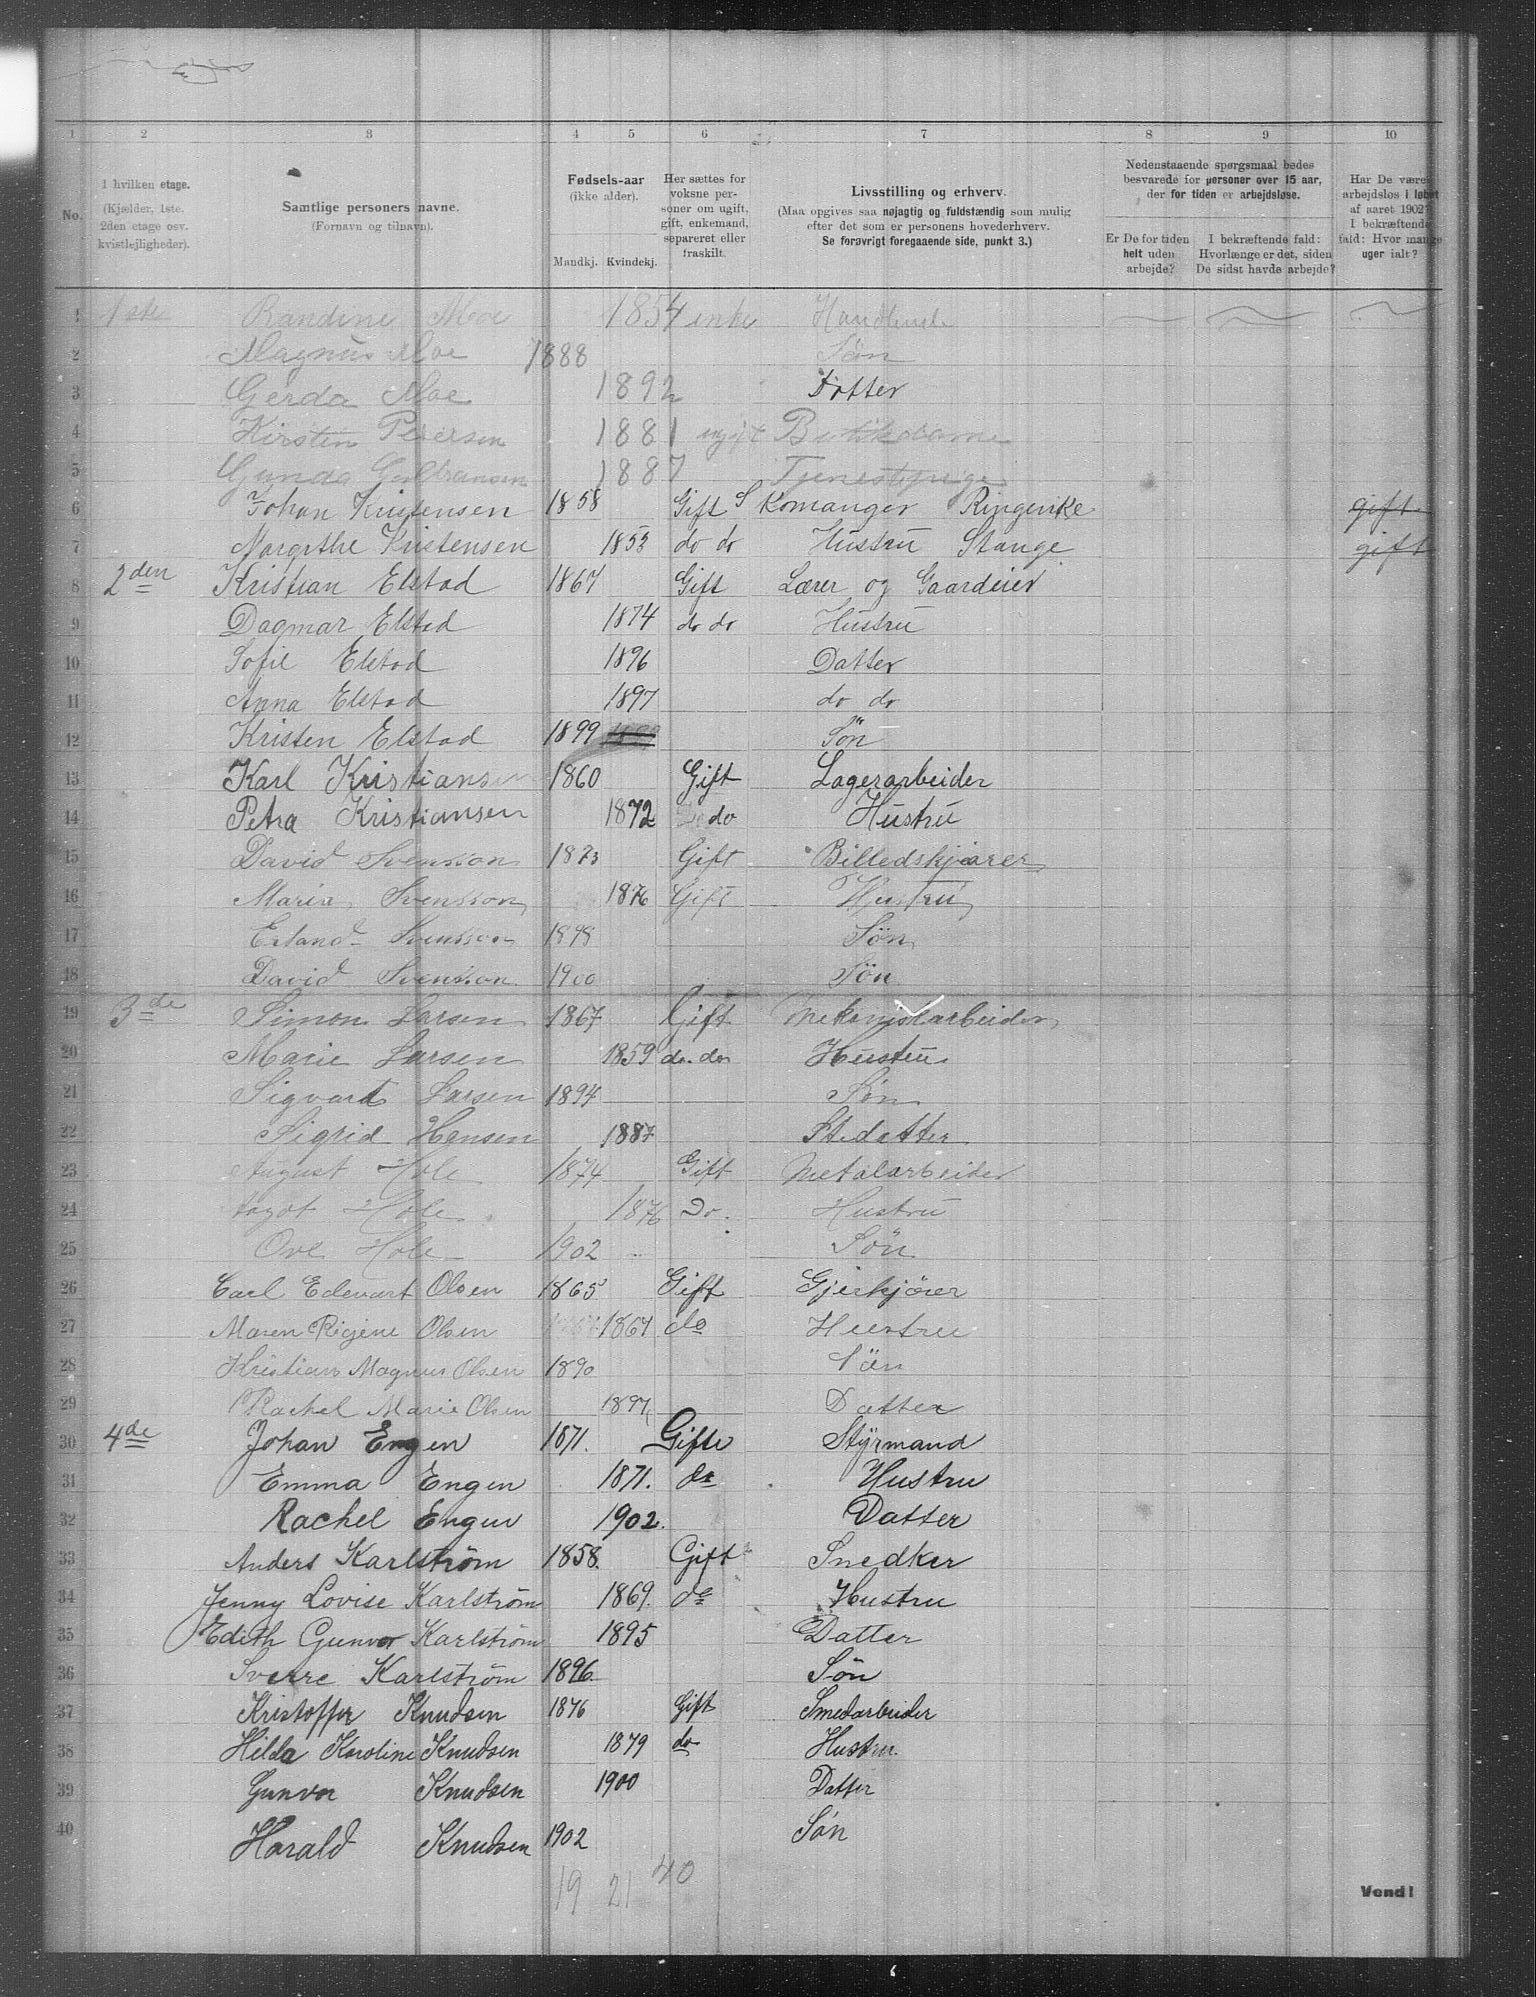 1 2 3 4 5 6 7 8 9 10
No.
I hvilken etage.
(Kjælder, 1ste. 2den etage osv. kvistlejligheder).
Samtlige personers navne.
(Fornavn og tilnavn).
Fødsels-aar
(ikke alder).
Mandkj. Kvindekj.
Her sættes for voksne personer om ugift, gift, enkemand, separeret eller fraskilt.
Livsstilling og erhverv.
(Maa opgives saa nøjagtig og fuldstændig som mulig
efter det som er personens hovederhverv.
Se forøvrigt foregaaende side, punkt 3.)
Nedenstaaende spørgsmaal bedes
besvarede for personer over 15 aar,
der for tiden er arbejdsløse.
Er De for tiden helt uden arbejde?
I bekræftende fald: Hvorlænge er det, siden De sidst havde arbejde?
Har De være arbejdsløs i løbet af aaret 1902? I bekræftende fald: Hvor mange uger ialt?
1 1ste Randine Moe 1854 enke Handlende
2 Magnus Moe 1888 Søn
3 Gerda Moe 1892 Datter
4 Kirsten Petersen 1881 ugift Butikdame
5 Gunda Guldransen 1887 Tjenestepige
6 Johan Kristensen 1858 Gift Skomanger Ringerike gift
7 Margrthe Kristensen 1853 do do Hustru Stange gift
8 2den Kristian Elstad 1867 Gift Lærer og Gaardeier
9 Dagmar Elstad 1874 do do Hustru
10 Sofie Elstad 1896 Datter
11 Anna Elstad 1897 do do
12 Kristen Elstad 1899 Søn
13 Karl Kristiansen 1860 Gift Lagerarbeider
14 Petra Kristiansen 1872 do Hustru
15 David Svensson 1873 Gift Billedskjærer
16 Maria Svensson 1876 Gift Hustru
17 Erland Svensson 1898 Søn
18 David Svensson 1900 Søn
19 3de Simon Larsen 1867 Gift Mekaniskarbeider
20 Marie Larsen 1859 do. do. Hustru
21 Sigvard Larsen 1894 Søn
22 Sigrid Hansen 1887 Stedatter
23 August Hole 1874 Gift Metalarbeider
24 Hole 1876 Do. Hustru
25 Ove Hole 1902 Søn
26 Carl Edevart Olsen 1865 Gift Gjerkjører
27 Maren Rigine Olsen 1867 do Hustru
28 Kristian Magnus Olsen 1890 Søn
29 Rachel Marie Olsen 1897 Datter
30 4de Johan Engen 1871. Gifte Styrmand
31 Emma Engen 1871. do Hustru
32 Rachel Engen 1902. Datter
33 Anders Karlström 1858. Gift Snedker
34 Jenny Lovise Karlström 1869. do Hustru
35 Edith Gunvor Karlström 1895 Datter
36 Sverre Karlström 1896 Søn
37 Kristoffer Knudsen 1876 Gift Smedarbeider
38 Hilda Karoline Knudsen 1879 do Hustru
39 Gunvor Knudsen 1900 Datter
40 Harald Knudsen 1902 Søn
19 21 40
Vend!